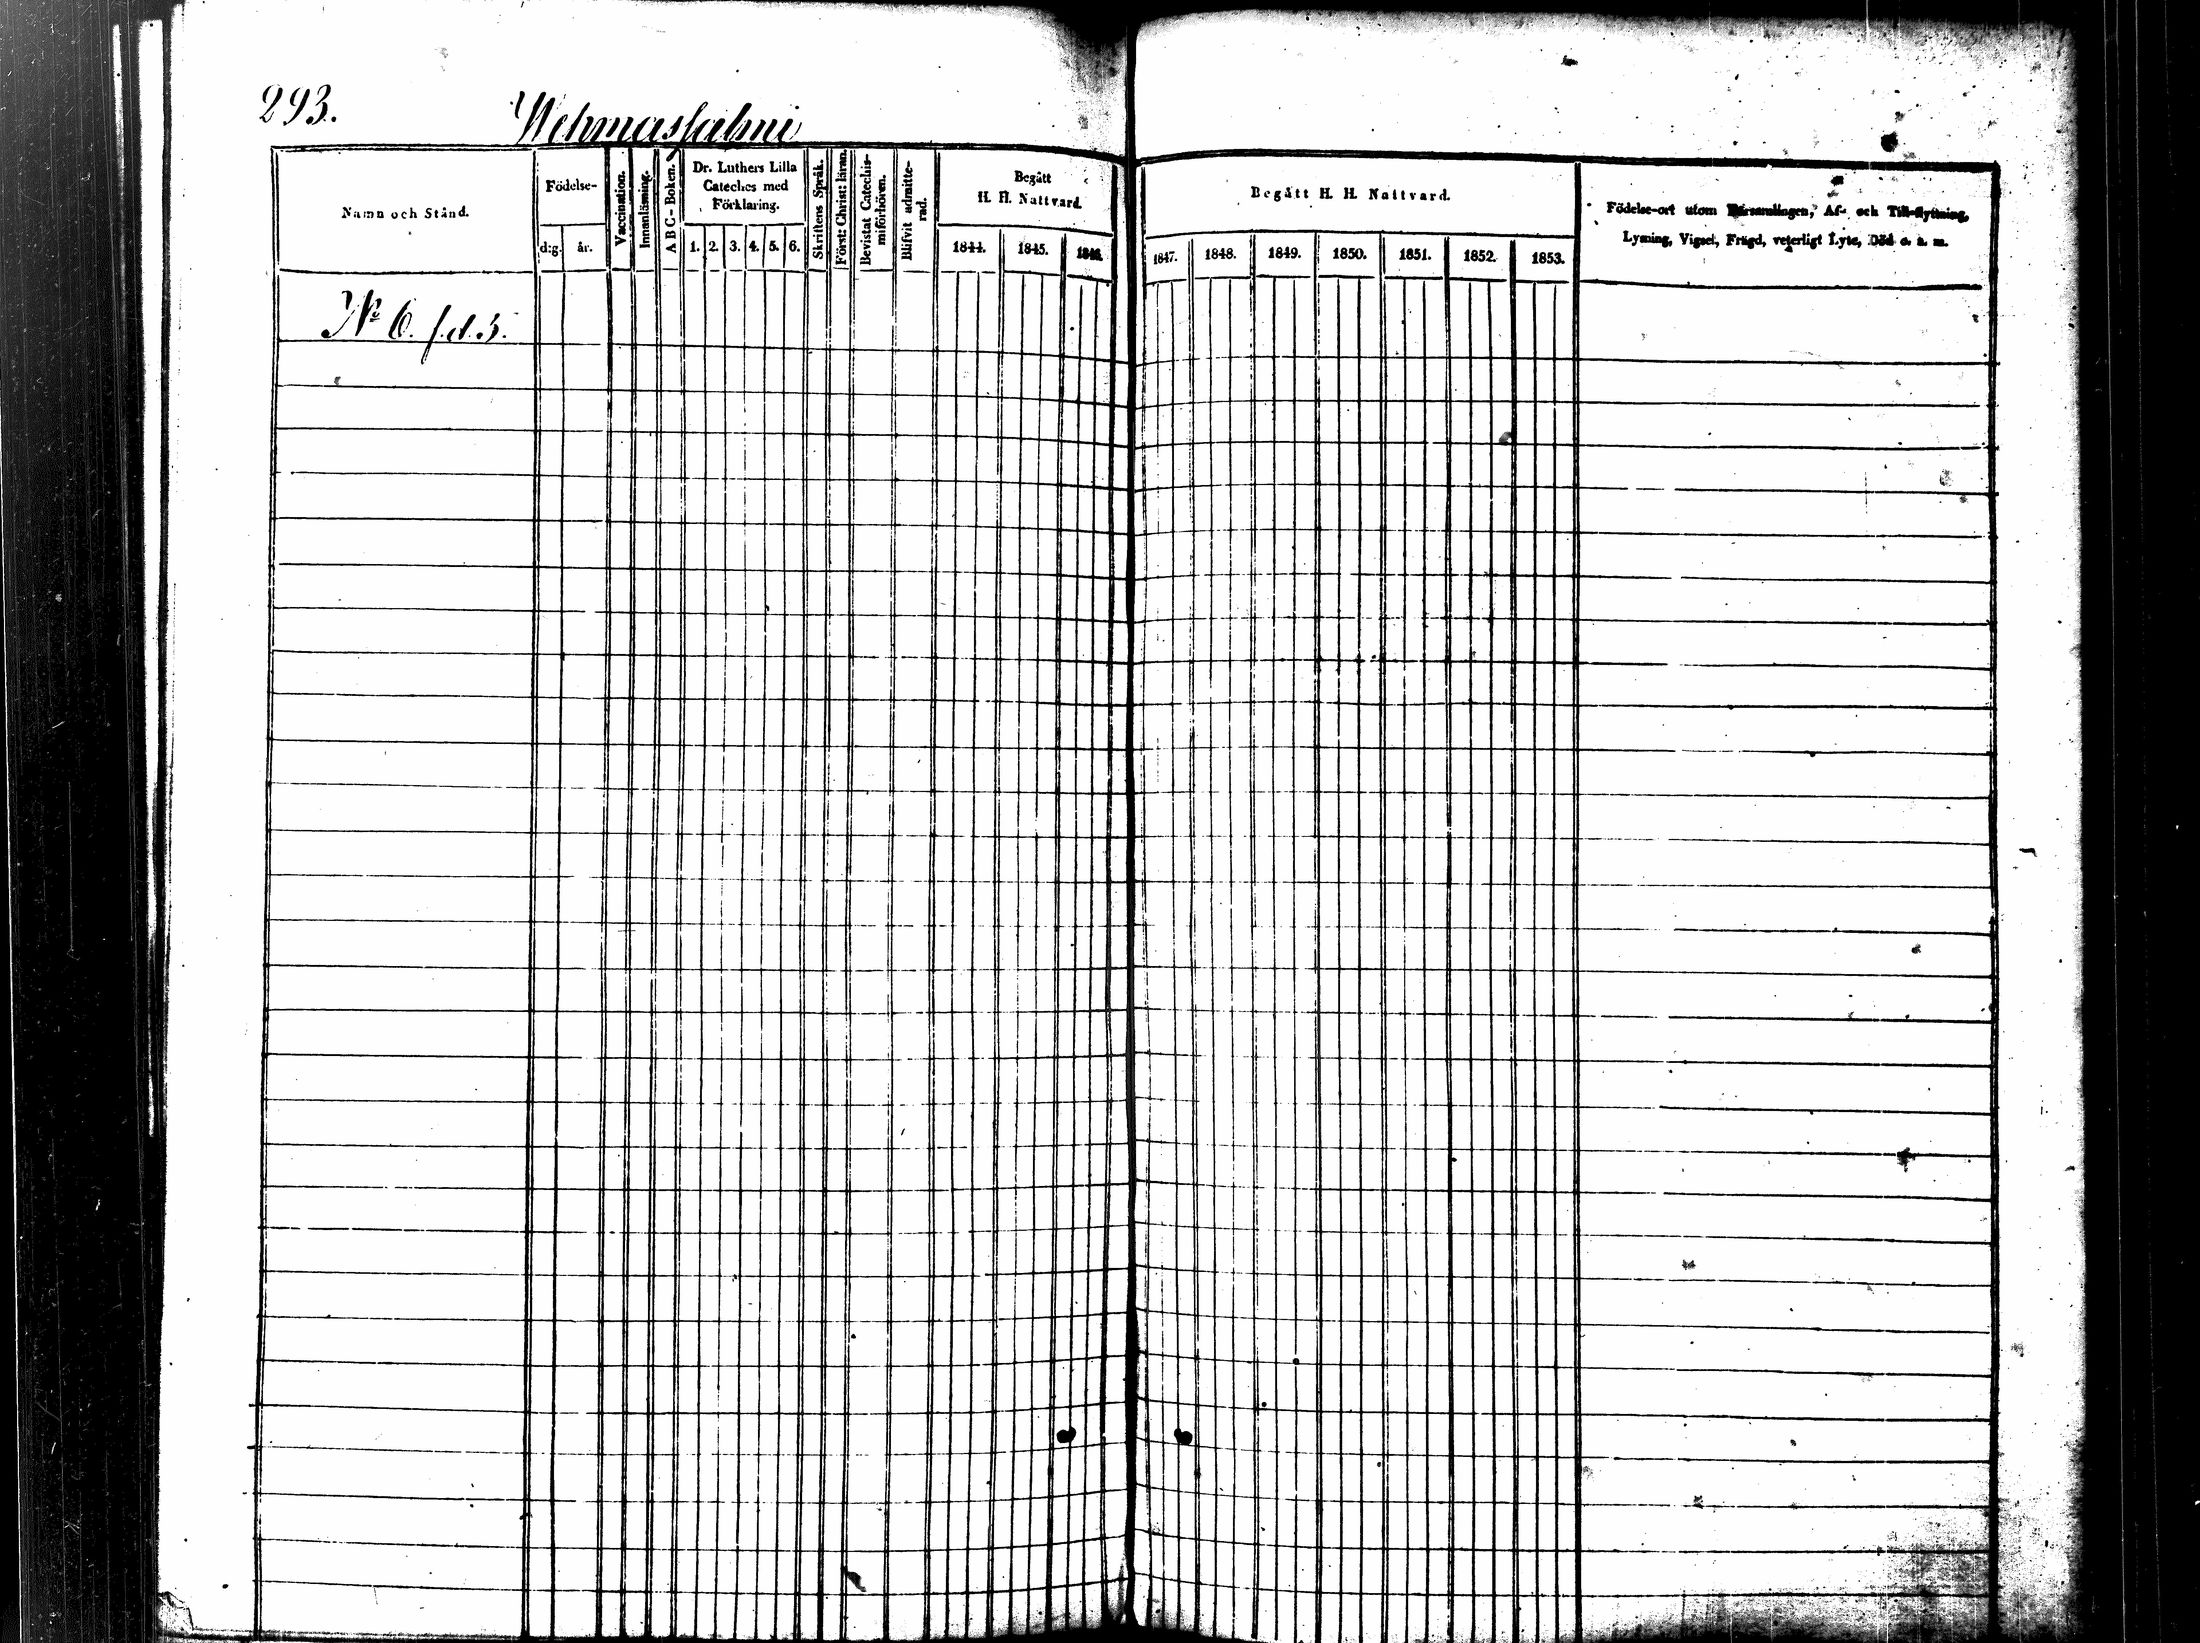 293. Wehmassalmi
Namn och Stånd.
Födelse-
d:g. år.
Vaccination.
Innanläsning.
A B C - Boken.
Dr. Luthers Lilla
Cateches med
Förklaring.
1. 2. 3. 4. 5. 6.
Skriftens Språk.
Först: Christ: läran.
Bevistat Catechis-
miförhören.
Blifvit admitte-
rad.
Begått
H. H. Nattvard.
1844. 1845. 1846.
Begått H. H. Nattvard.
1847. 1848. 1849. 1850. 1851. 1852. 1853.
Födelse-ort utom Församlingen, Af- och Till-flyttning,
Lysning, Vigsel, Frägd, veterligt Lyte, Död o. s. m.
No 6. f.d. 5.